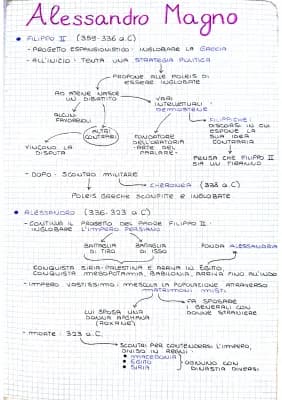 Alessandro Magno
• FILIPPO II (359-336 a.C)
- PROGETTO ESPANSIONISTICO: INGLOBARE LA GRECIA
- ALL'INIZIO: TENTA UNA STRATEGIA POLITICA
PROPONE ALLE POLEIS DI
ESSERE INGLOBATE
AD ATENE NASCE
UN DIBATTITO
VARI
INTELLETTUALI:
DEMOSTENE
ALCUNI
FAVOREVOLI
ALTRI
CONTRARI
FILIPPICHE:
DISCORSI IN CUI
ESPONE LA
SUA IDEA
CONTRARIA
VINCONO LA
DISPUTA
FONDATORE
DELL'ORATORIA
-ARTE DEL
PARLARE-
PENSA CHE FILIPPO II
SIA UN TIRANNO
- DOPO: SCONTRO MILITARE
CHERONEA (338 a.C)
POLEIS GRECHE SCONFITTE E INGLOBATE
• ALESSANDRO (336-323 a.C)
- CONTINUA IL PROGETTO DEL PADRE FILIPPO II:
INGLOBARE L'IMPERO PERSIANO
BATTAGLIA
DI TIRO
BATTAGLIA
DI ISSO
FONDA ALESSANDRIA
CONQUISTA SIRIA-PALESTINA E ARRIVA IN EGITTO,
CONQUISTA MESOPOTAMIA, BABILONIA, ARRIVA FINO ALL'INDO
- IMPERO VASTISSIMO: MESCOLA LA POPOLAZIONE ATTRAVERSO
MATRIMONI MISTI
LUI SPOSA UNA
DONNA AFGHANA
(ROXANE)
FA SPOSARE
I GENERALI CON
DONNE STRANIERE
- MORTE: 323 a.C.
SCONTRI PER CONTENDERSI L'IMPERO,
DIVISO IN REGNI:
• MACEDONIA
• EGITTO
• SIRIA
OGNUNO CON
DINASTIA DIVERSA